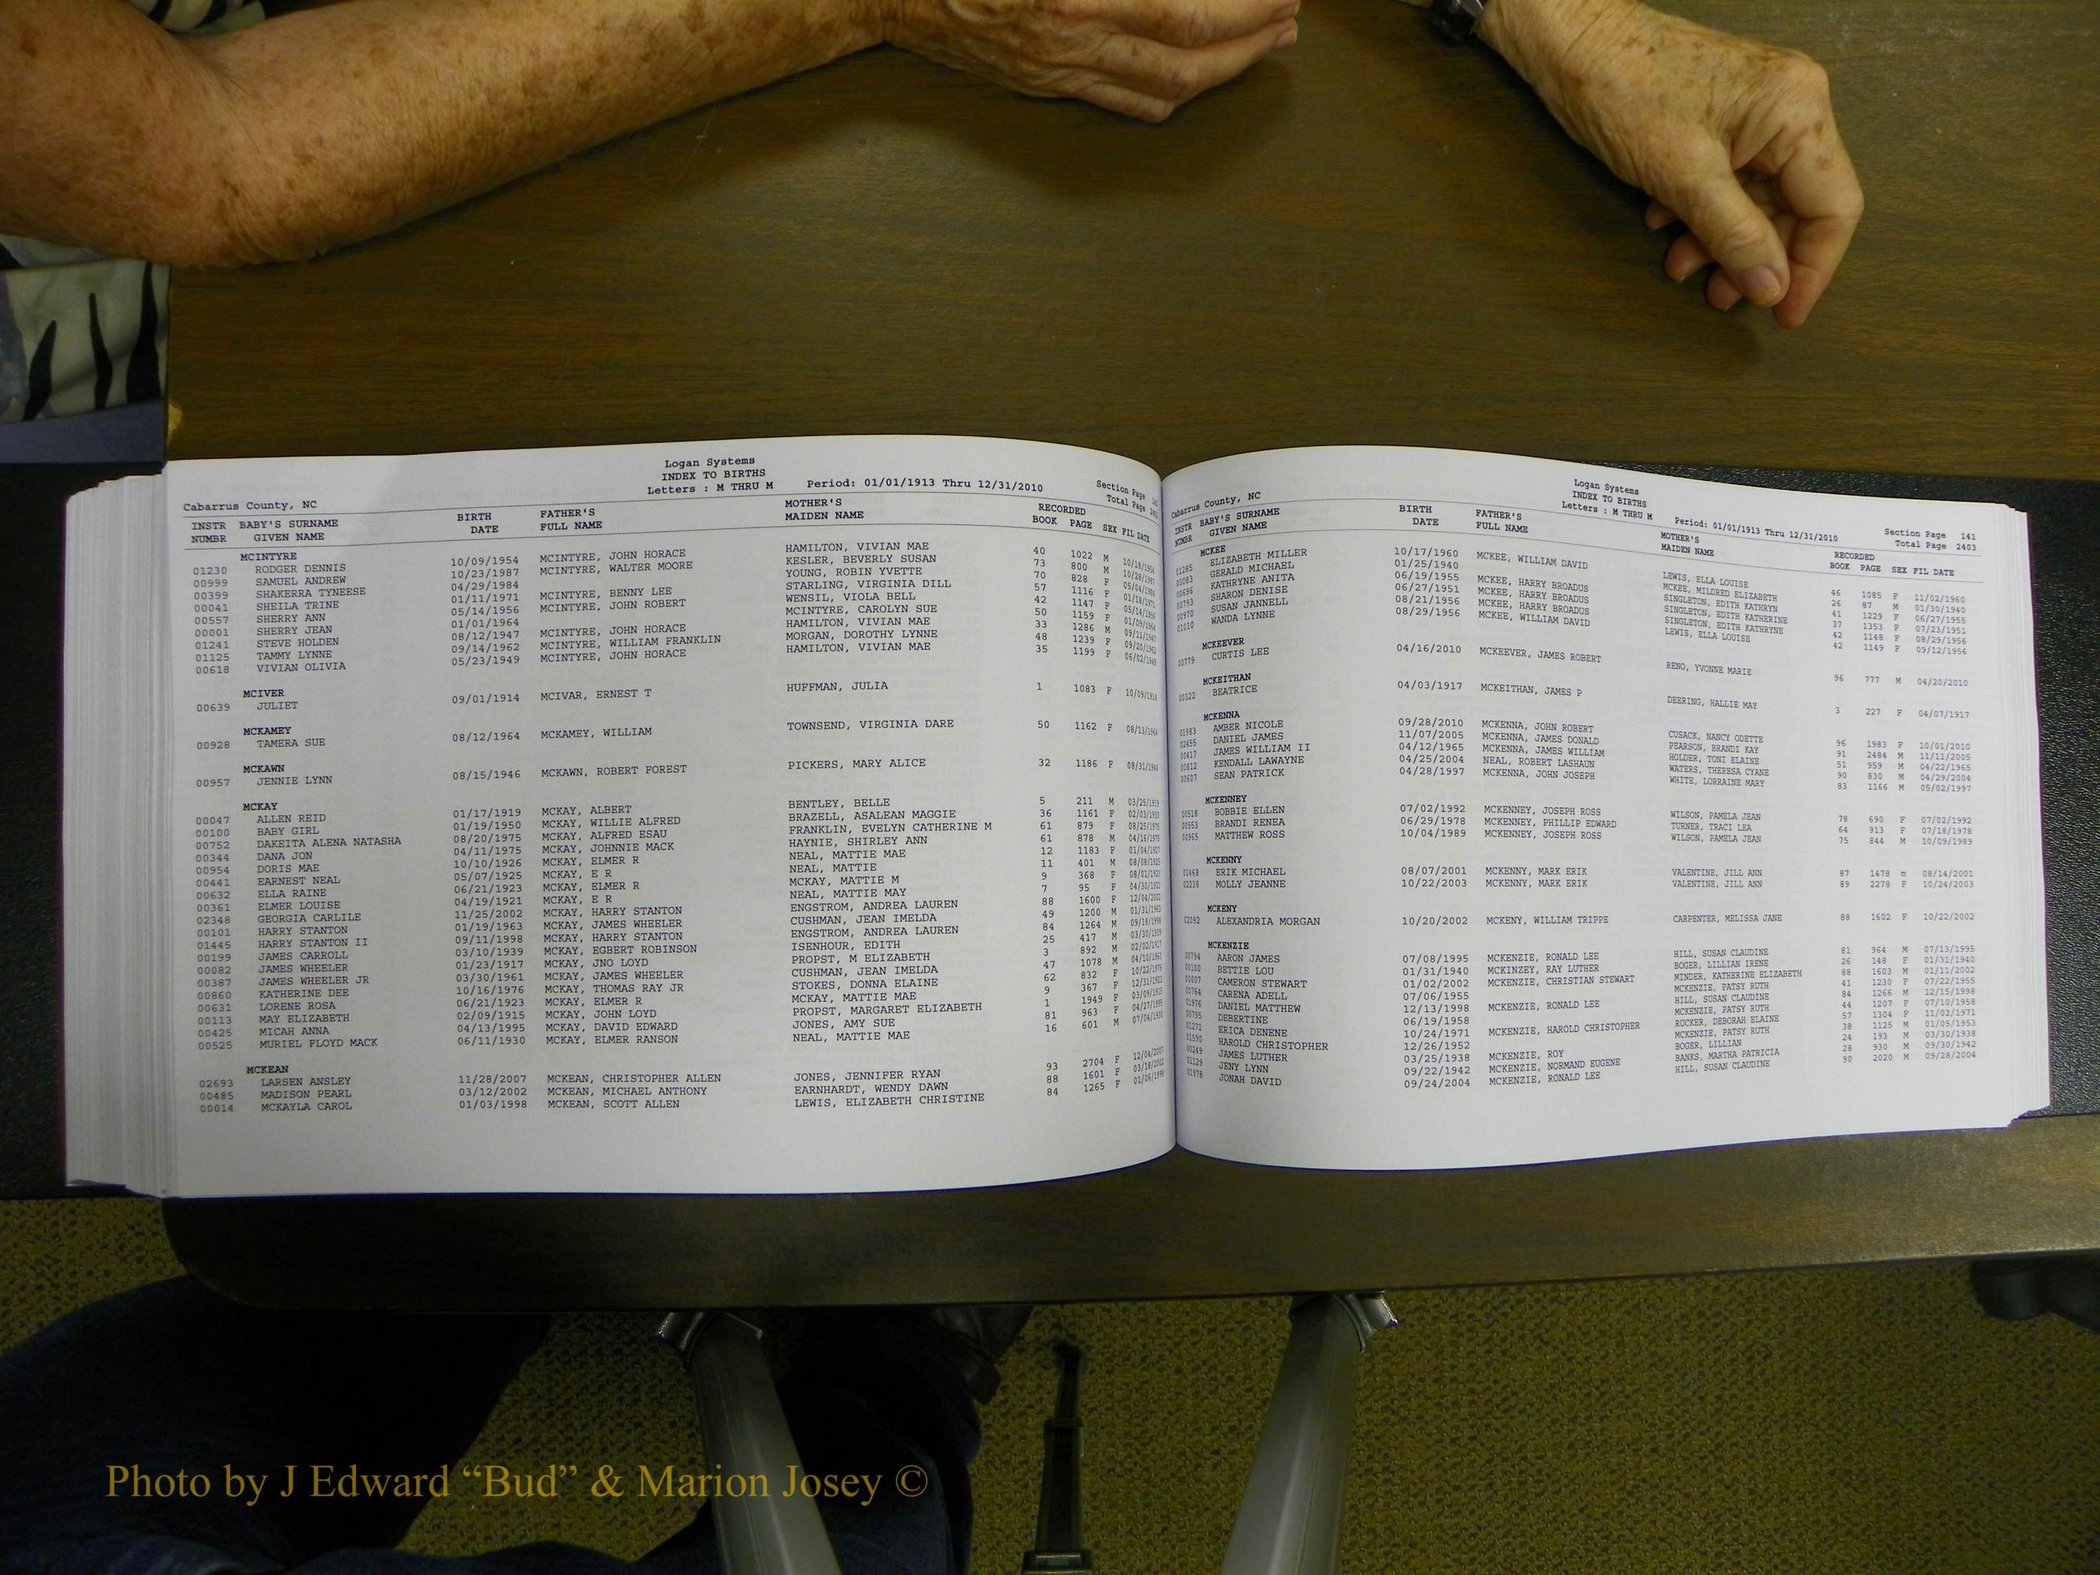 Logan Systems
INDEX TO BIRTHS
Cabarrus County, NC Letters : M THRU M Period: 01/01/1913 Thru 12/31/2010 Section Page
Total Page
INSTR BABY'S SURNAME BIRTH FATHER'S MOTHER'S RECORDED
NUMBR GIVEN NAME DATE FULL NAME MAIDEN NAME BOOK PAGE SEX FIL DATE
MCINTYRE
01230 RODGER DENNIS 10/09/1954 MCINTYRE, JOHN HORACE HAMILTON, VIVIAN MAE 40 1022 M 10/18/1954
00999 SAMUEL ANDREW 10/23/1987 MCINTYRE, WALTER MOORE KESLER, BEVERLY SUSAN 73 800 M 10/28/1987
00399 SHAKERRA TYNEESE 04/29/1984 YOUNG, ROBIN YVETTE 70 828 F 05/04/1984
00041 SHEILA TRINE 01/11/1971 MCINTYRE, BENNY LEE STARLING, VIRGINIA DILL 57 1116 F 01/18/1971
00557 SHERRY ANN 05/14/1956 MCINTYRE, JOHN ROBERT WENSIL, VIOLA BELL 42 1147 F 05/14/1956
00001 SHERRY JEAN 01/01/1964 MCINTYRE, CAROLYN SUE 50 1159 F 01/09/1964
01241 STEVE HOLDEN 08/12/1947 MCINTYRE, JOHN HORACE HAMILTON, VIVIAN MAE 33 1286 M 09/11/1947
01125 TAMMY LYNNE 09/14/1962 MCINTYRE, WILLIAM FRANKLIN MORGAN, DOROTHY LYNNE 48 1239 F 09/20/1962
00618 VIVIAN OLIVIA 05/23/1949 MCINTYRE, JOHN HORACE HAMILTON, VIVIAN MAE 35 1199 F 06/02/1949
MCIVER
00639 JULIET 09/01/1914 MCIVAR, ERNEST T HUFFMAN, JULIA 1 1083 F 10/09/1914
MCKAMEY
00928 TAMERA SUE 08/12/1964 MCKAMEY, WILLIAM TOWNSEND, VIRGINIA DARE 50 1162 F 08/13/1964
MCKAWN
00957 JENNIE LYNN 08/15/1946 MCKAWN, ROBERT FOREST PICKERS, MARY ALICE 32 1186 F 08/31/1946
MCKAY
00047 ALLEN REID 01/17/1919 MCKAY, ALBERT BENTLEY, BELLE 5 211 M 03/25/1919
00100 BABY GIRL 01/19/1950 MCKAY, WILLIE ALFRED BRAZELL, ASALEAN MAGGIE 36 1161 F 02/03/1950
00752 DAKEITA ALENA NATASHA 08/20/1975 MCKAY, ALFRED ESAU FRANKLIN, EVELYN CATHERINE M 61 879 F 08/25/1975
00344 DANA JON 04/11/1975 MCKAY, JOHNNIE MACK HAYNIE, SHIRLEY ANN 61 878 M 04/16/1975
00954 DORIS MAE 10/10/1926 MCKAY, ELMER R NEAL, MATTIE MAE 12 1183 F 01/04/1927
00441 EARNEST NEAL 05/07/1925 MCKAY, E R NEAL, MATTIE 11 401 M 08/08/1925
00632 ELLA RAINE 06/21/1923 MCKAY, ELMER R MCKAY, MATTIE M 9 368 F 08/01/1923
00361 ELMER LOUISE 04/19/1921 MCKAY, E R NEAL, MATTIE MAY 7 95 F 04/30/1921
02348 GEORGIA CARLILE 11/25/2002 MCKAY, HARRY STANTON ENGSTROM, ANDREA LAUREN 88 1600 F 12/04/2002
00101 HARRY STANTON 01/19/1963 MCKAY, JAMES WHEELER CUSHMAN, JEAN IMELDA 49 1200 M 01/31/1963
01445 HARRY STANTON II 09/11/1998 MCKAY, HARRY STANTON ENGSTROM, ANDREA LAUREN 84 1264 M 09/18/1998
00199 JAMES CARROLL 03/10/1939 MCKAY, EGBERT ROBINSON ISENHOUR, EDITH 25 417 M 03/30/1939
00082 JAMES WHEELER 01/23/1917 MCKAY, JNO LOYD PROPST, M ELIZABETH 3 892 M 02/02/1917
00387 JAMES WHEELER JR 03/30/1961 MCKAY, JAMES WHEELER CUSHMAN, JEAN IMELDA 47 1078 M 04/10/1961
00860 KATHERINE DEE 10/16/1976 MCKAY, THOMAS RAY JR STOKES, DONNA ELAINE 62 832 F 10/22/1976
00631 LORENE ROSA 06/21/1923 MCKAY, ELMER R MCKAY, MATTIE MAE 9 367 F 12/31/1923
00113 MAY ELIZABETH 02/09/1915 MCKAY, JOHN LOYD PROPST, MARGARET ELIZABETH 1 1949 F 03/09/1915
00425 MICAH ANNA 04/13/1995 MCKAY, DAVID EDWARD JONES, AMY SUE 81 963 F 04/27/1995
00525 MURIEL FLOYD MACK 06/11/1930 MCKAY, ELMER RANSON NEAL, MATTIE MAE 16 601 M 07/04/1930
MCKEAN
02693 LARSEN ANSLEY 11/28/2007 MCKEAN, CHRISTOPHER ALLEN JONES, JENNIFER RYAN 93 2704 F 12/04/2007
00485 MADISON PEARL 03/12/2002 MCKEAN, MICHAEL ANTHONY EARNHARDT, WENDY DAWN 88 1601 F 03/18/2002
00014 MCKAYLA CAROL 01/03/1998 MCKEAN, SCOTT ALLEN LEWIS, ELIZABETH CHRISTINE 84 1265 F 01/06/1998
Logan Systems
INDEX TO BIRTHS
Cabarrus County, NC Letters : M THRU M Period: 01/01/1913 Thru 12/31/2010 Section Page 141
Total Page 2403
INSTR BABY'S SURNAME BIRTH FATHER'S MOTHER'S RECORDED
NUMBR GIVEN NAME DATE FULL NAME MAIDEN NAME BOOK PAGE SEX FIL DATE
MCKEE
01285 ELIZABETH MILLER 10/17/1960 MCKEE, WILLIAM DAVID LEWIS, ELLA LOUISE 46 1085 F 11/02/1960
00083 GERALD MICHAEL 01/25/1940 MCKEE, MILDRED ELIZABETH 26 87 M 01/30/1940
00696 KATHRYNE ANITA 06/19/1955 MCKEE, HARRY BROADUS SINGLETON, EDITH KATHRYN 41 1229 F 06/27/1955
00793 SHARON DENISE 06/27/1951 MCKEE, HARRY BROADUS SINGLETON, EDITH KATHERINE 37 1353 F 07/23/1951
00970 SUSAN JANNELL 08/21/1956 MCKEE, HARRY BROADUS SINGLETON, EDITH KATHRYNE 42 1148 F 08/29/1956
01010 WANDA LYNNE 08/29/1956 MCKEE, WILLIAM DAVID LEWIS, ELLA LOUISE 42 1149 F 09/12/1956
MCKEEVER
00779 CURTIS LEE 04/16/2010 MCKEEVER, JAMES ROBERT RENO, YVONNE MARIE 96 777 M 04/20/2010
MCKEITHAN
00322 BEATRICE 04/03/1917 MCKEITHAN, JAMES P DEERING, HALLIE MAY 3 227 F 04/07/1917
MCKENNA
01983 AMBER NICOLE 09/28/2010 MCKENNA, JOHN ROBERT CUSACK, NANCY ODETTE 96 1983 F 10/01/2010
02455 DANIEL JAMES 11/07/2005 MCKENNA, JAMES DONALD PEARSON, BRANDI KAY 91 2484 M 11/11/2005
00417 JAMES WILLIAM II 04/12/1965 MCKENNA, JAMES WILLIAM HOLDER, TONI ELAINE 51 959 M 04/22/1965
00812 KENDALL LAWAYNE 04/25/2004 NEAL, ROBERT LASHAUN WATERS, THERESA CYANE 90 830 M 04/29/2004
00607 SEAN PATRICK 04/28/1997 MCKENNA, JOHN JOSEPH WHITE, LORRAINE MARY 83 1166 M 05/02/1997
MCKENNEY
00518 BOBBIE ELLEN 07/02/1992 MCKENNEY, JOSEPH ROSS WILSON, PAMELA JEAN 78 690 F 07/02/1992
00553 BRANDI RENEA 06/29/1978 MCKENNEY, PHILLIP EDWARD TURNER, TRACI LEA 64 913 F 07/18/1978
00965 MATTHEW ROSS 10/04/1989 MCKENNEY, JOSEPH ROSS WILSON, PAMELA JEAN 75 844 M 10/09/1989
MCKENNY
01468 ERIK MICHAEL 08/07/2001 MCKENNY, MARK ERIK VALENTINE, JILL ANN 87 1478 m 08/14/2001
02238 MOLLY JEANNE 10/22/2003 MCKENNY, MARK ERIK VALENTINE, JILL ANN 89 2278 F 10/24/2003
MCKENY
02092 ALEXANDRIA MORGAN 10/20/2002 MCKENY, WILLIAM TRIPPE CARPENTER, MELISSA JANE 88 1602 F 10/22/2002
MCKENZIE
00794 AARON JAMES 07/08/1995 MCKENZIE, RONALD LEE HILL, SUSAN CLAUDINE 81 964 M 07/13/1995
00100 BETTIE LOU 01/31/1940 MCKINZEY, RAY LUTHER BOGER, LILLIAN IRENE 26 148 F 01/31/1940
00007 CAMERON STEWART 01/02/2002 MCKENZIE, CHRISTIAN STEWART MINDER, KATHERINE ELIZABETH 88 1603 M 01/11/2002
00764 CARENA ADELL 07/06/1955 MCKENZIE, PATSY RUTH 41 1230 F 07/22/1955
01976 DANIEL MATTHEW 12/13/1998 MCKENZIE, RONALD LEE HILL, SUSAN CLAUDINE 84 1266 M 12/15/1998
00795 DEBERTINE 06/19/1958 MCKENZIE, PATSY RUTH 44 1207 F 07/10/1958
01271 ERICA DENENE 10/24/1971 MCKENZIE, HAROLD CHRISTOPHER RUCKER, DEBORAH ELAINE 57 1304 F 11/02/1971
01590 HAROLD CHRISTOPHER 12/26/1952 MCKENZIE, PATSY RUTH 38 1125 M 01/05/1953
00249 JAMES LUTHER 03/25/1938 MCKENZIE, ROY BOGER, LILLIAN 24 193 M 03/30/1938
01129 JENY LYNN 09/22/1942 MCKENZIE, NORMAND EUGENE BANKS, MARTHA PATRICIA 28 930 M 09/30/1942
01978 JONAH DAVID 09/24/2004 MCKENZIE, RONALD LEE HILL, SUSAN CLAUDINE 90 2020 M 09/28/2004
Photo by J Edward “Bud” & Marion Josey ©